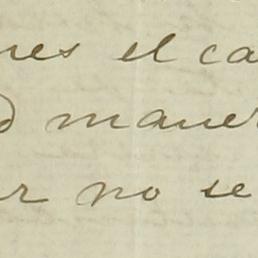 nes el ca
d maner
r no se